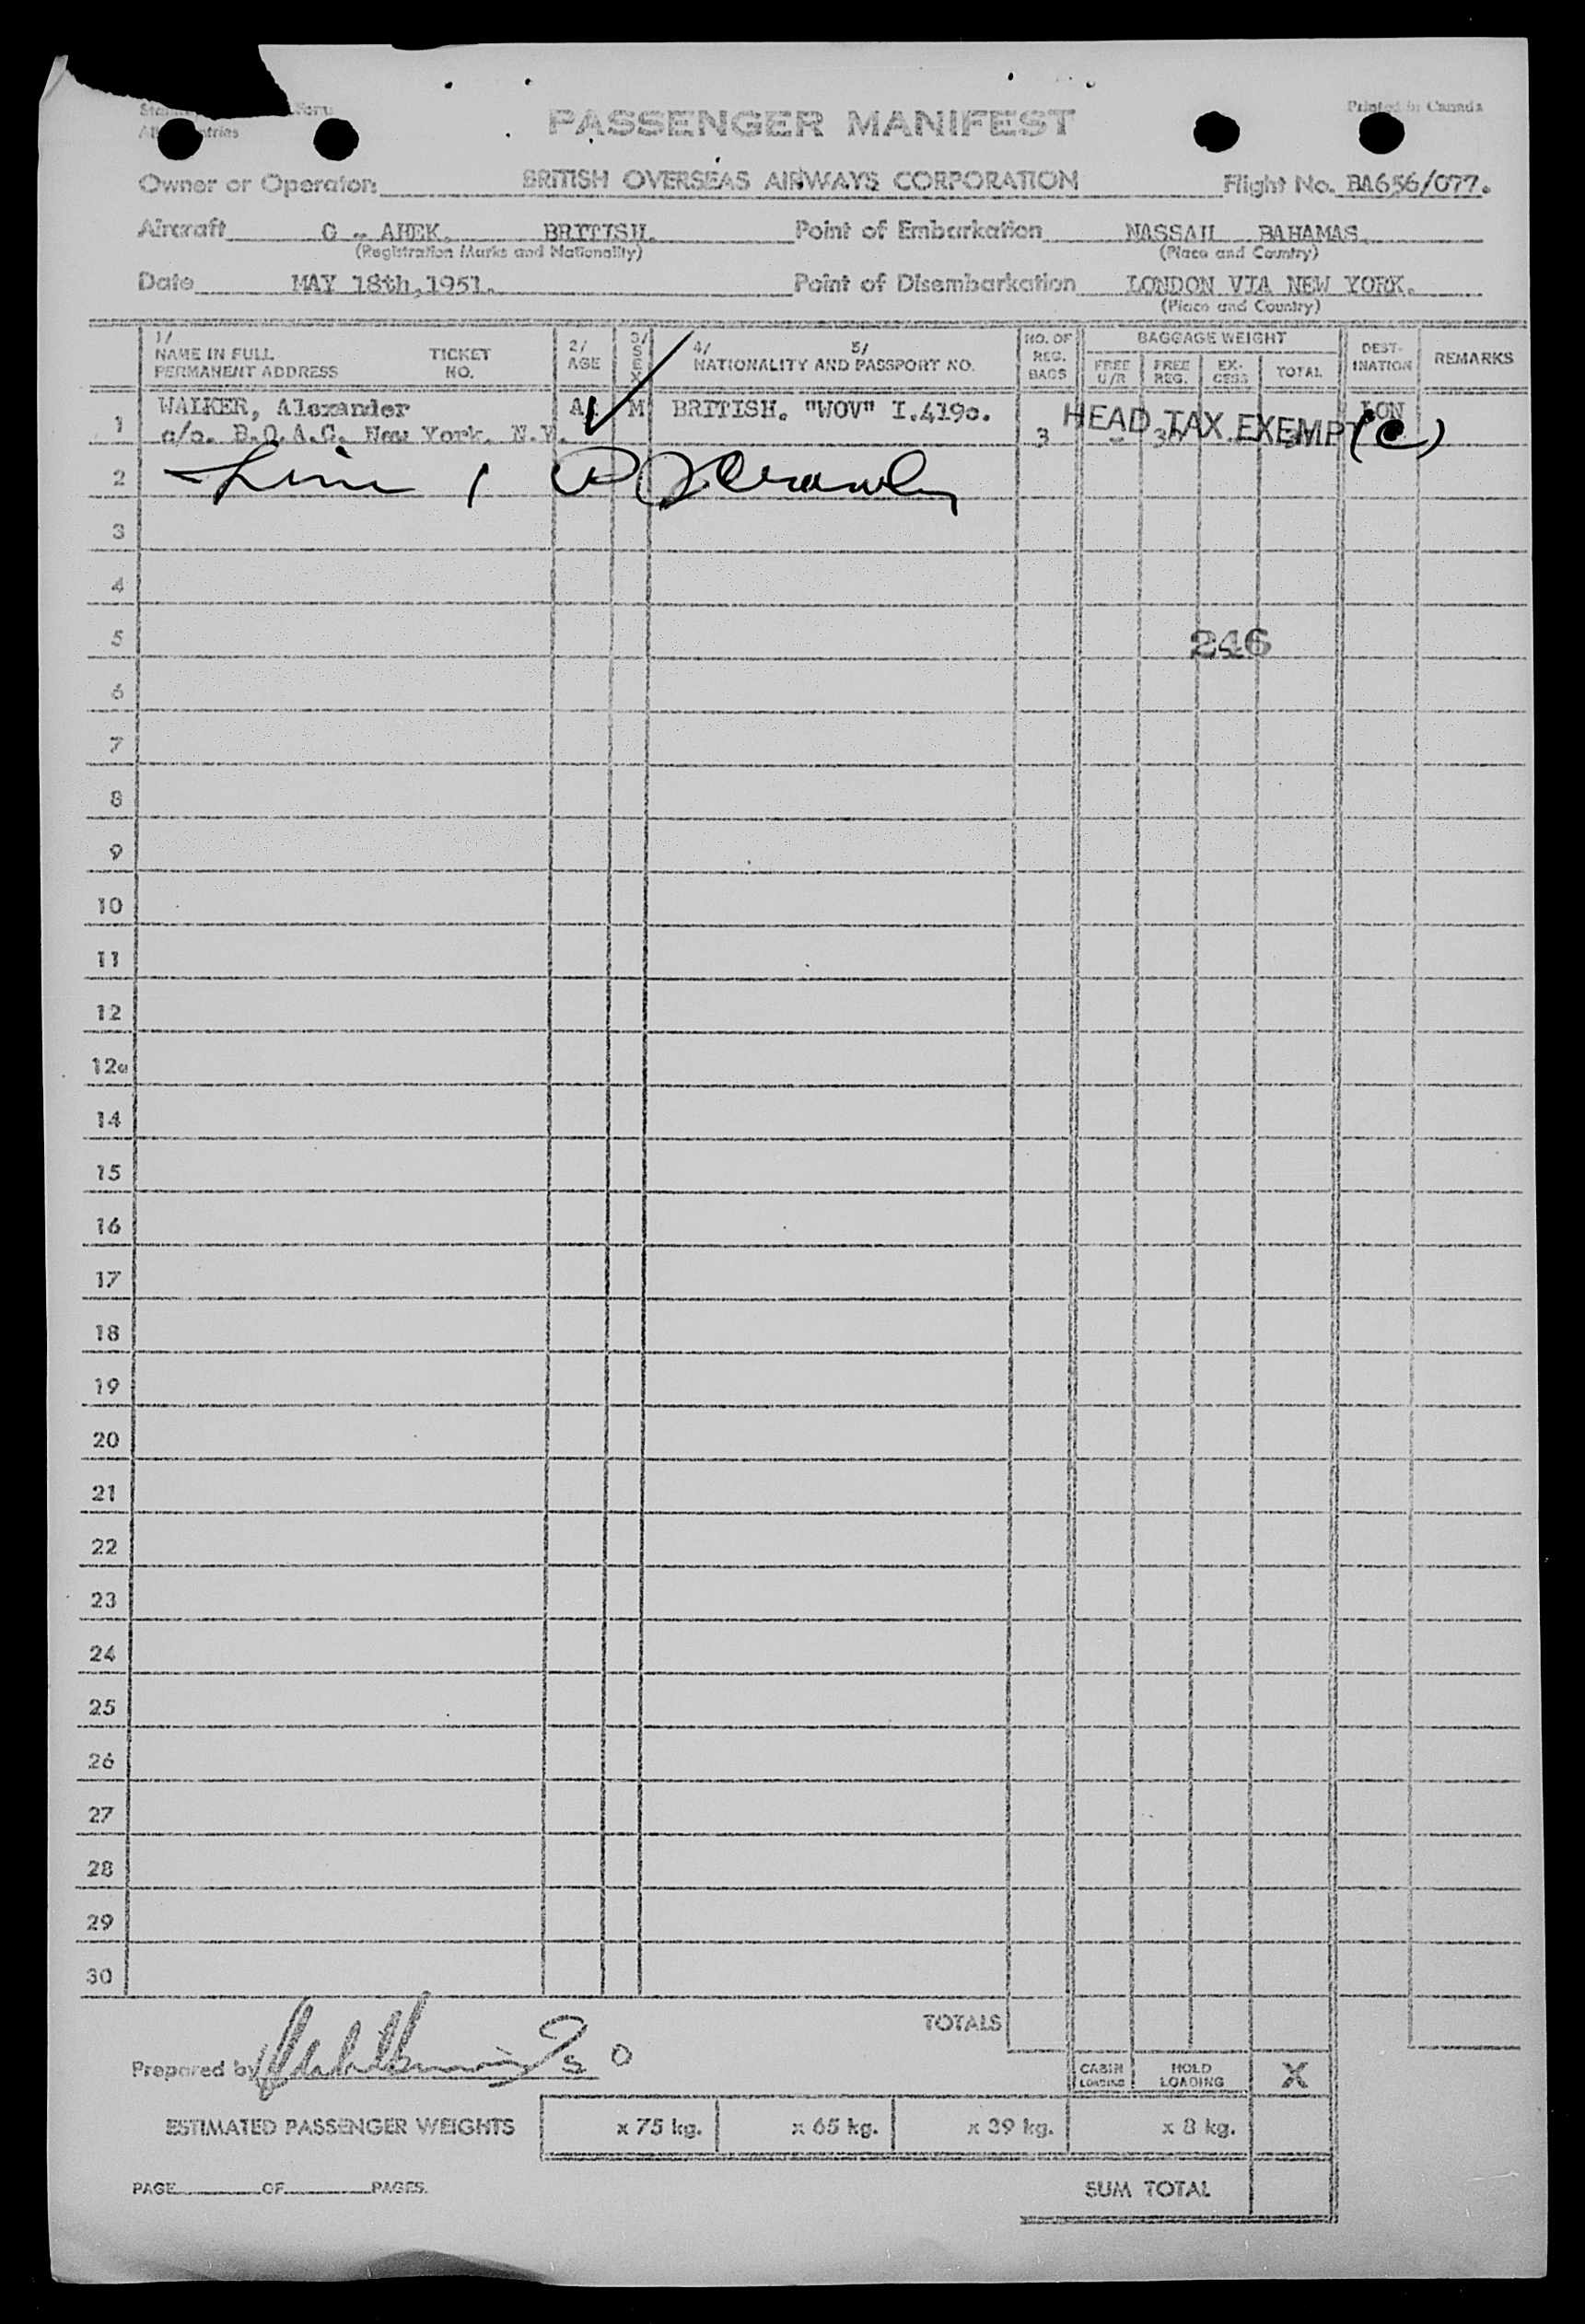 PASSENGER MANIFEST
Printed in Canada
Owner or Operator: BRITISH OVERSEAS AIRWAYS CORPORATION Flight No. BA656/077.
Aircraft G - AHEK. BRITISH. Point of Embarkation NASSAU BAHAMAS.
(Registration Marks and Nationality) (Place and Country)
Date MAY 18th,1951. Point of Disembarkation LONDON VIA NEW YORK.
(Place and Country)
1/ NAME IN FULL PERMANENT ADDRESS TICKET NO. 2/ AGE 3/ SEX 4/ 5/ NATIONALITY AND PASSPORT NO. NO. OF REG. BAGS BAGGAGE WEIGHT FREE U/R FREE REG. EX-CESS TOTAL DEST-INATION REMARKS
1 WALKER, Alexander M BRITISH. "WOV" I.4190. LON
c/o. B.O.A.C. New York. N.Y. 3 HEAD TAX EXEMPT (C)
2 Line 1
3
4
5 246
6
7
8
9
10
11
12
12a
14
15
16
17
18
19
20
21
22
23
24
25
26
27
28
29
30
TOTALS
Prepared by
CABIN LOADING HOLD LOADING X
ESTIMATED PASSENGER WEIGHTS x 75 kg. x 65 kg. x 39 kg. x 8 kg.
PAGE OF PAGES.
SUM TOTAL